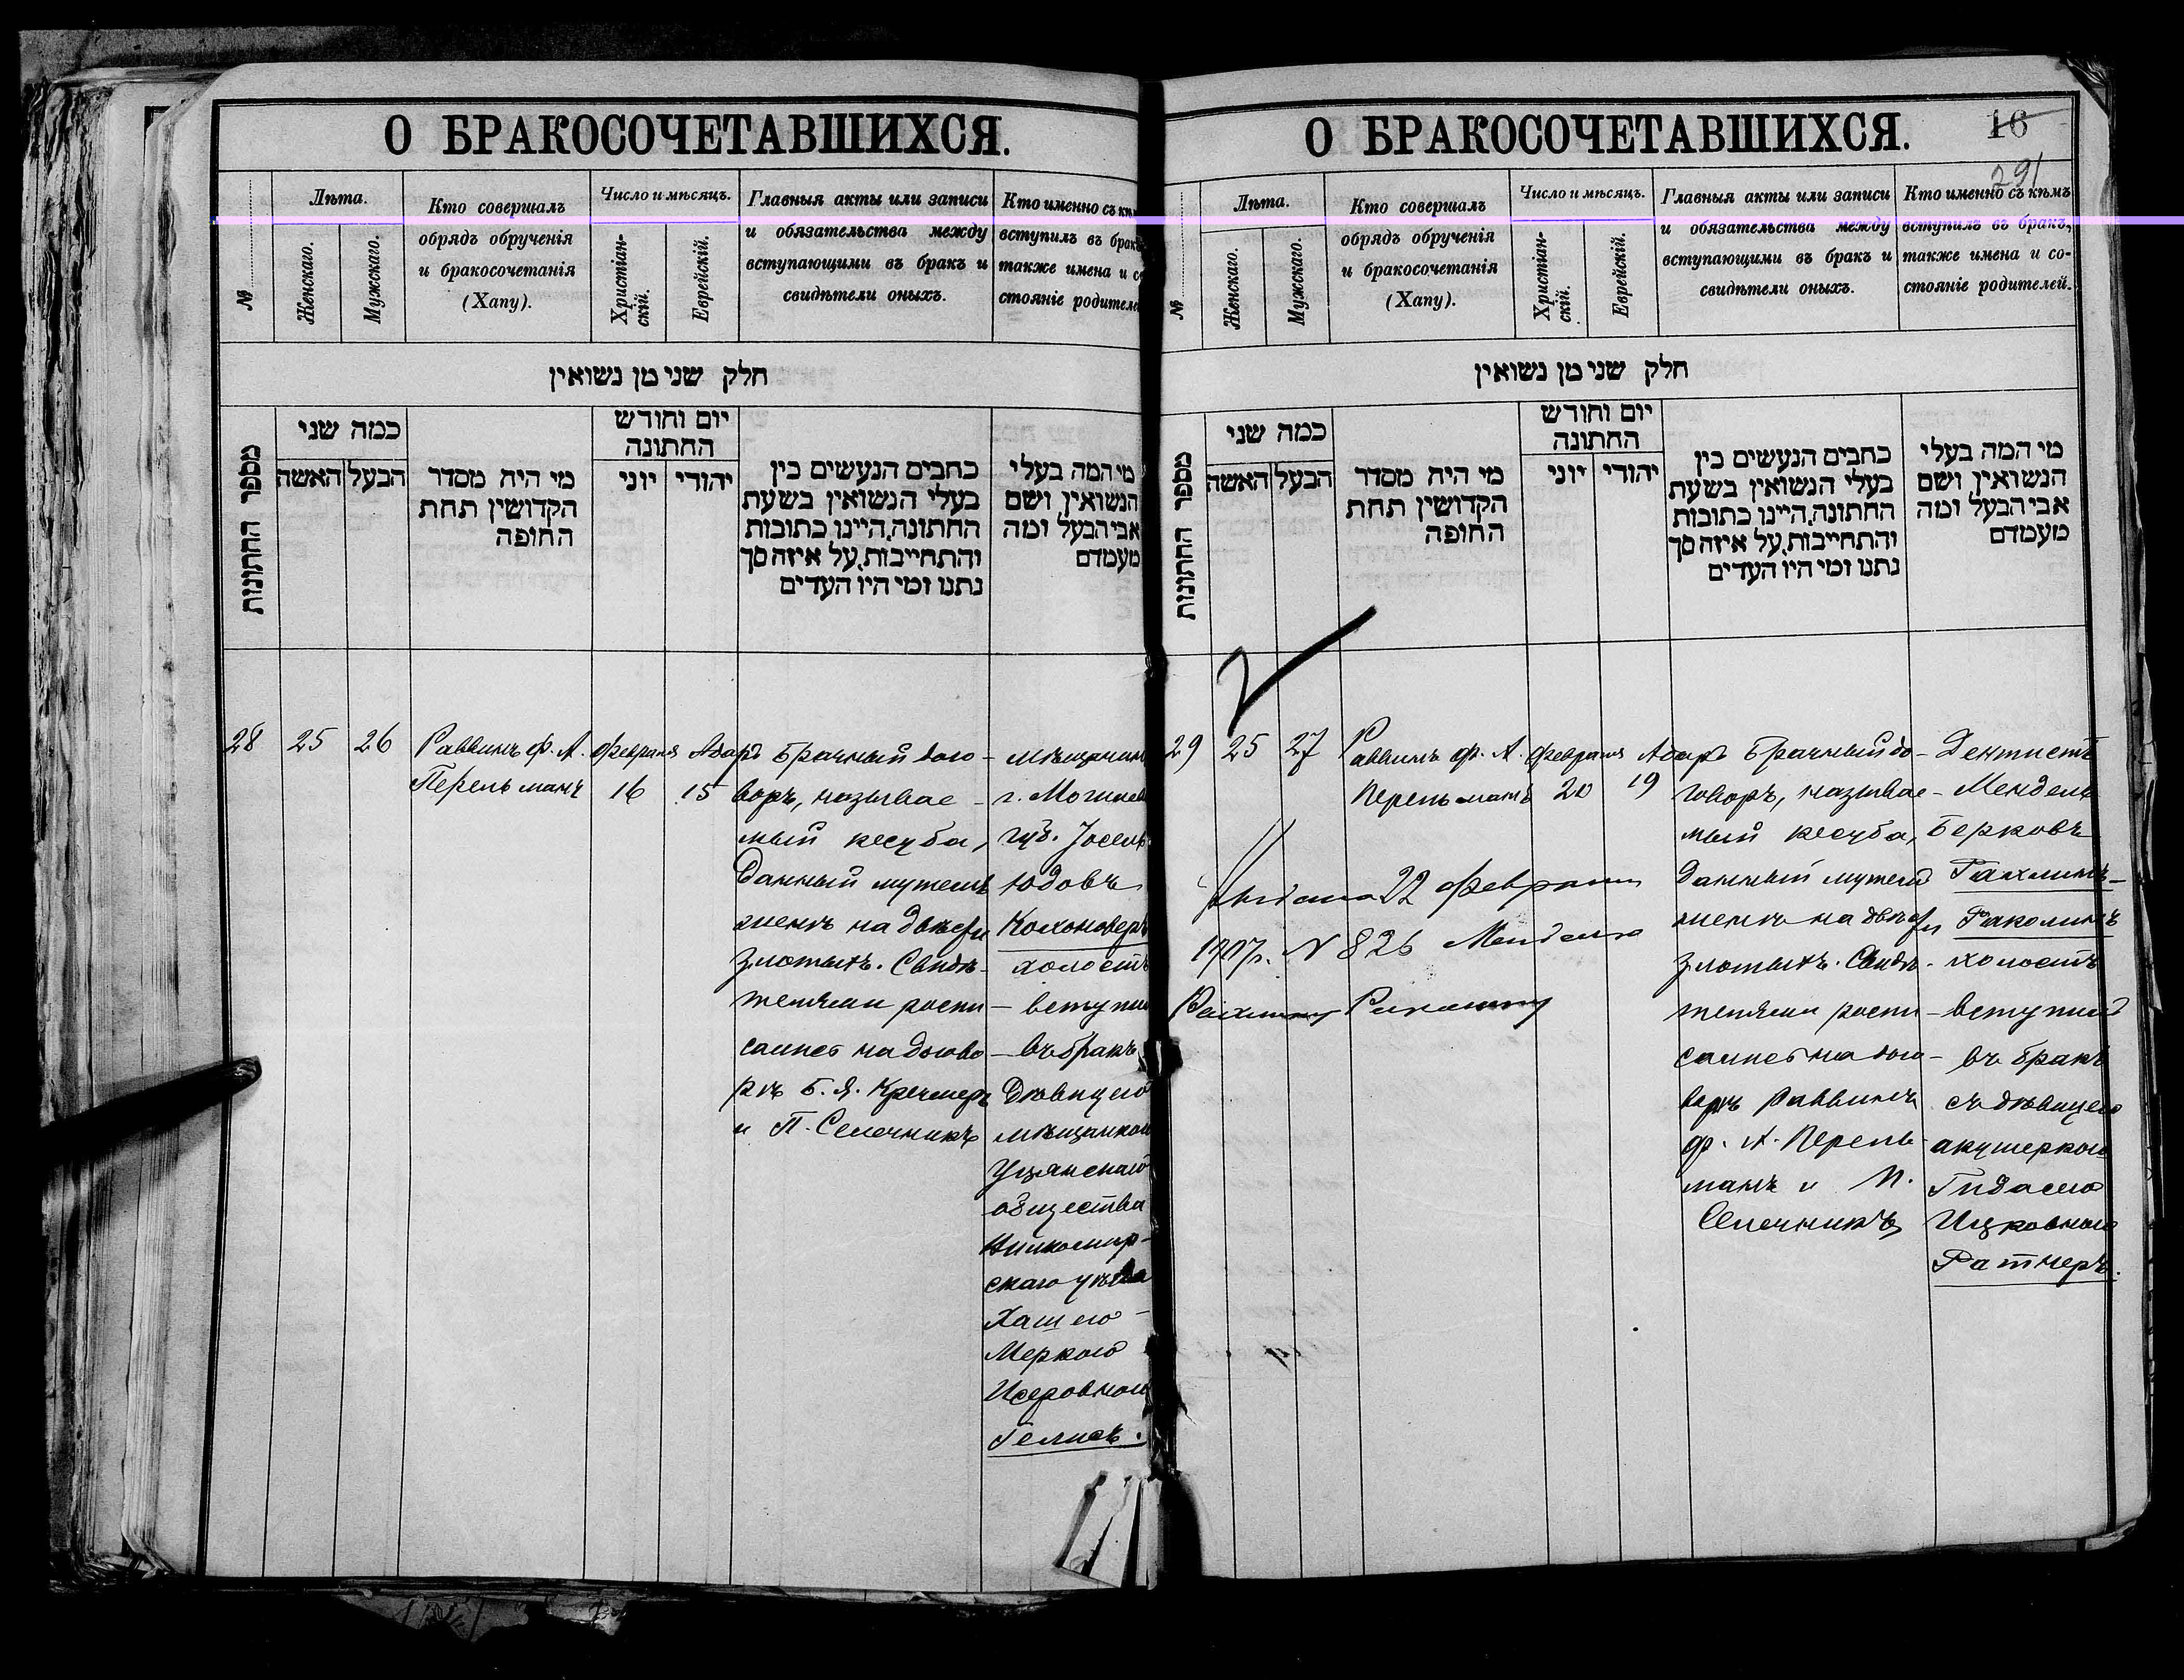 О БРАКОСОЧЕТАВШИХСЯ.
№
Лѣта.
Женскаго.
Мужскаго.
Кто совершалъ
обрядъ обрученія
и бракосочетанія
(Хапу).
Число и мѣсяцъ.
Христіан-
скій.
Еврейскій.
Главныя акты или записи
и обязательства между
вступающими въ бракъ и
свидѣтели оныхъ.
Кто именно съ
вступилъ въ
также имена и
стояніе
חלק שני מן נשואין
מספר החתונות
כמה שני
האשה
הבעל
מי היה מסדר
הקדושין תחת
החופה
יום וחודש
החתונה
יוני
יהודי
כתבים הנעשים בין
בעלי הנשואין בשעת
החתונה, היינו כתובות
והתחייבות, על איזה סך
נתנו ומי היו העדים
מי המה בעלי
הנשואין ושם
אבי הבעל ומה
מעמדם
28
25
26
Раввинъ Ф. А.
Перельманъ
Февраля
16
Адаръ
15
Брачный дого-
воръ, называе-
мый кесуба,
Данный мужемъ
женѣ на двѣсти
злотыхъ. Свидѣ-
телями распи-
сались на догово-
рѣ Б. Я. Кречмеръ
и П. Селечникъ
мѣщанинъ
г. Могилев
губ. Іосель
Юдовъ
Кохоноверъ
холостъ
вступил
въ бракъ
Дѣвицею
мѣщанкою
Уцянскаго
общества
Вилкомир-
скаго уѣзда
Хашею-
Меркою
Исеровною
Гелисъ.
О БРАКОСОЧЕТАВШИХСЯ.
16
291
№
Лѣта.
Женскаго.
Мужскаго.
Кто совершалъ
обрядъ обрученія
и бракосочетанія
(Хапу).
Число и мѣсяцъ.
Христіан-
скій.
Еврейскій.
Главныя акты или записи
и обязательства между
вступающими въ бракъ и
свидѣтели оныхъ.
Кто именно съ кѣмъ
вступилъ въ бракъ,
также имена и со-
стояніе родителей.
חלק שני מן נשואין
מספר החתונות
כמה שני
האשה
הבעל
מי היה מסדר
הקדושין תחת
החופה
יום וחודש
החתונה
יוני
יהודי
כתבים הנעשים בין
בעלי הנשואין בשעת
החתונה, היינו כתובות
והתחייבות, על איזה סך
נתנו ומי היו העדים
מי המה בעלי
הנשואין ושם
אבי הבעל ומה
מעמדם
29
25
27
Раввинъ Ф. А.
Перельманъ
Февраля
20
Адаръ
19
22 февраля
1907г. № 826 Менделю
Рахлину
Брачный до-
говоръ, называе-
мый кесуба,
Данный мужемъ
женѣ на двѣсти
злотыхъ. Свидѣ-
телями распи-
сались на дого-
ворѣ Раввинъ
Ф. А. Перель-
манъ и П.
Селечникъ
Дентистъ
Мендель
Берковъ
Рахлинъ-
холостъ
вступилъ
въ бракъ
съ дѣвицею
акушеркою
Гидасею
Ицковною
Ратнеръ.